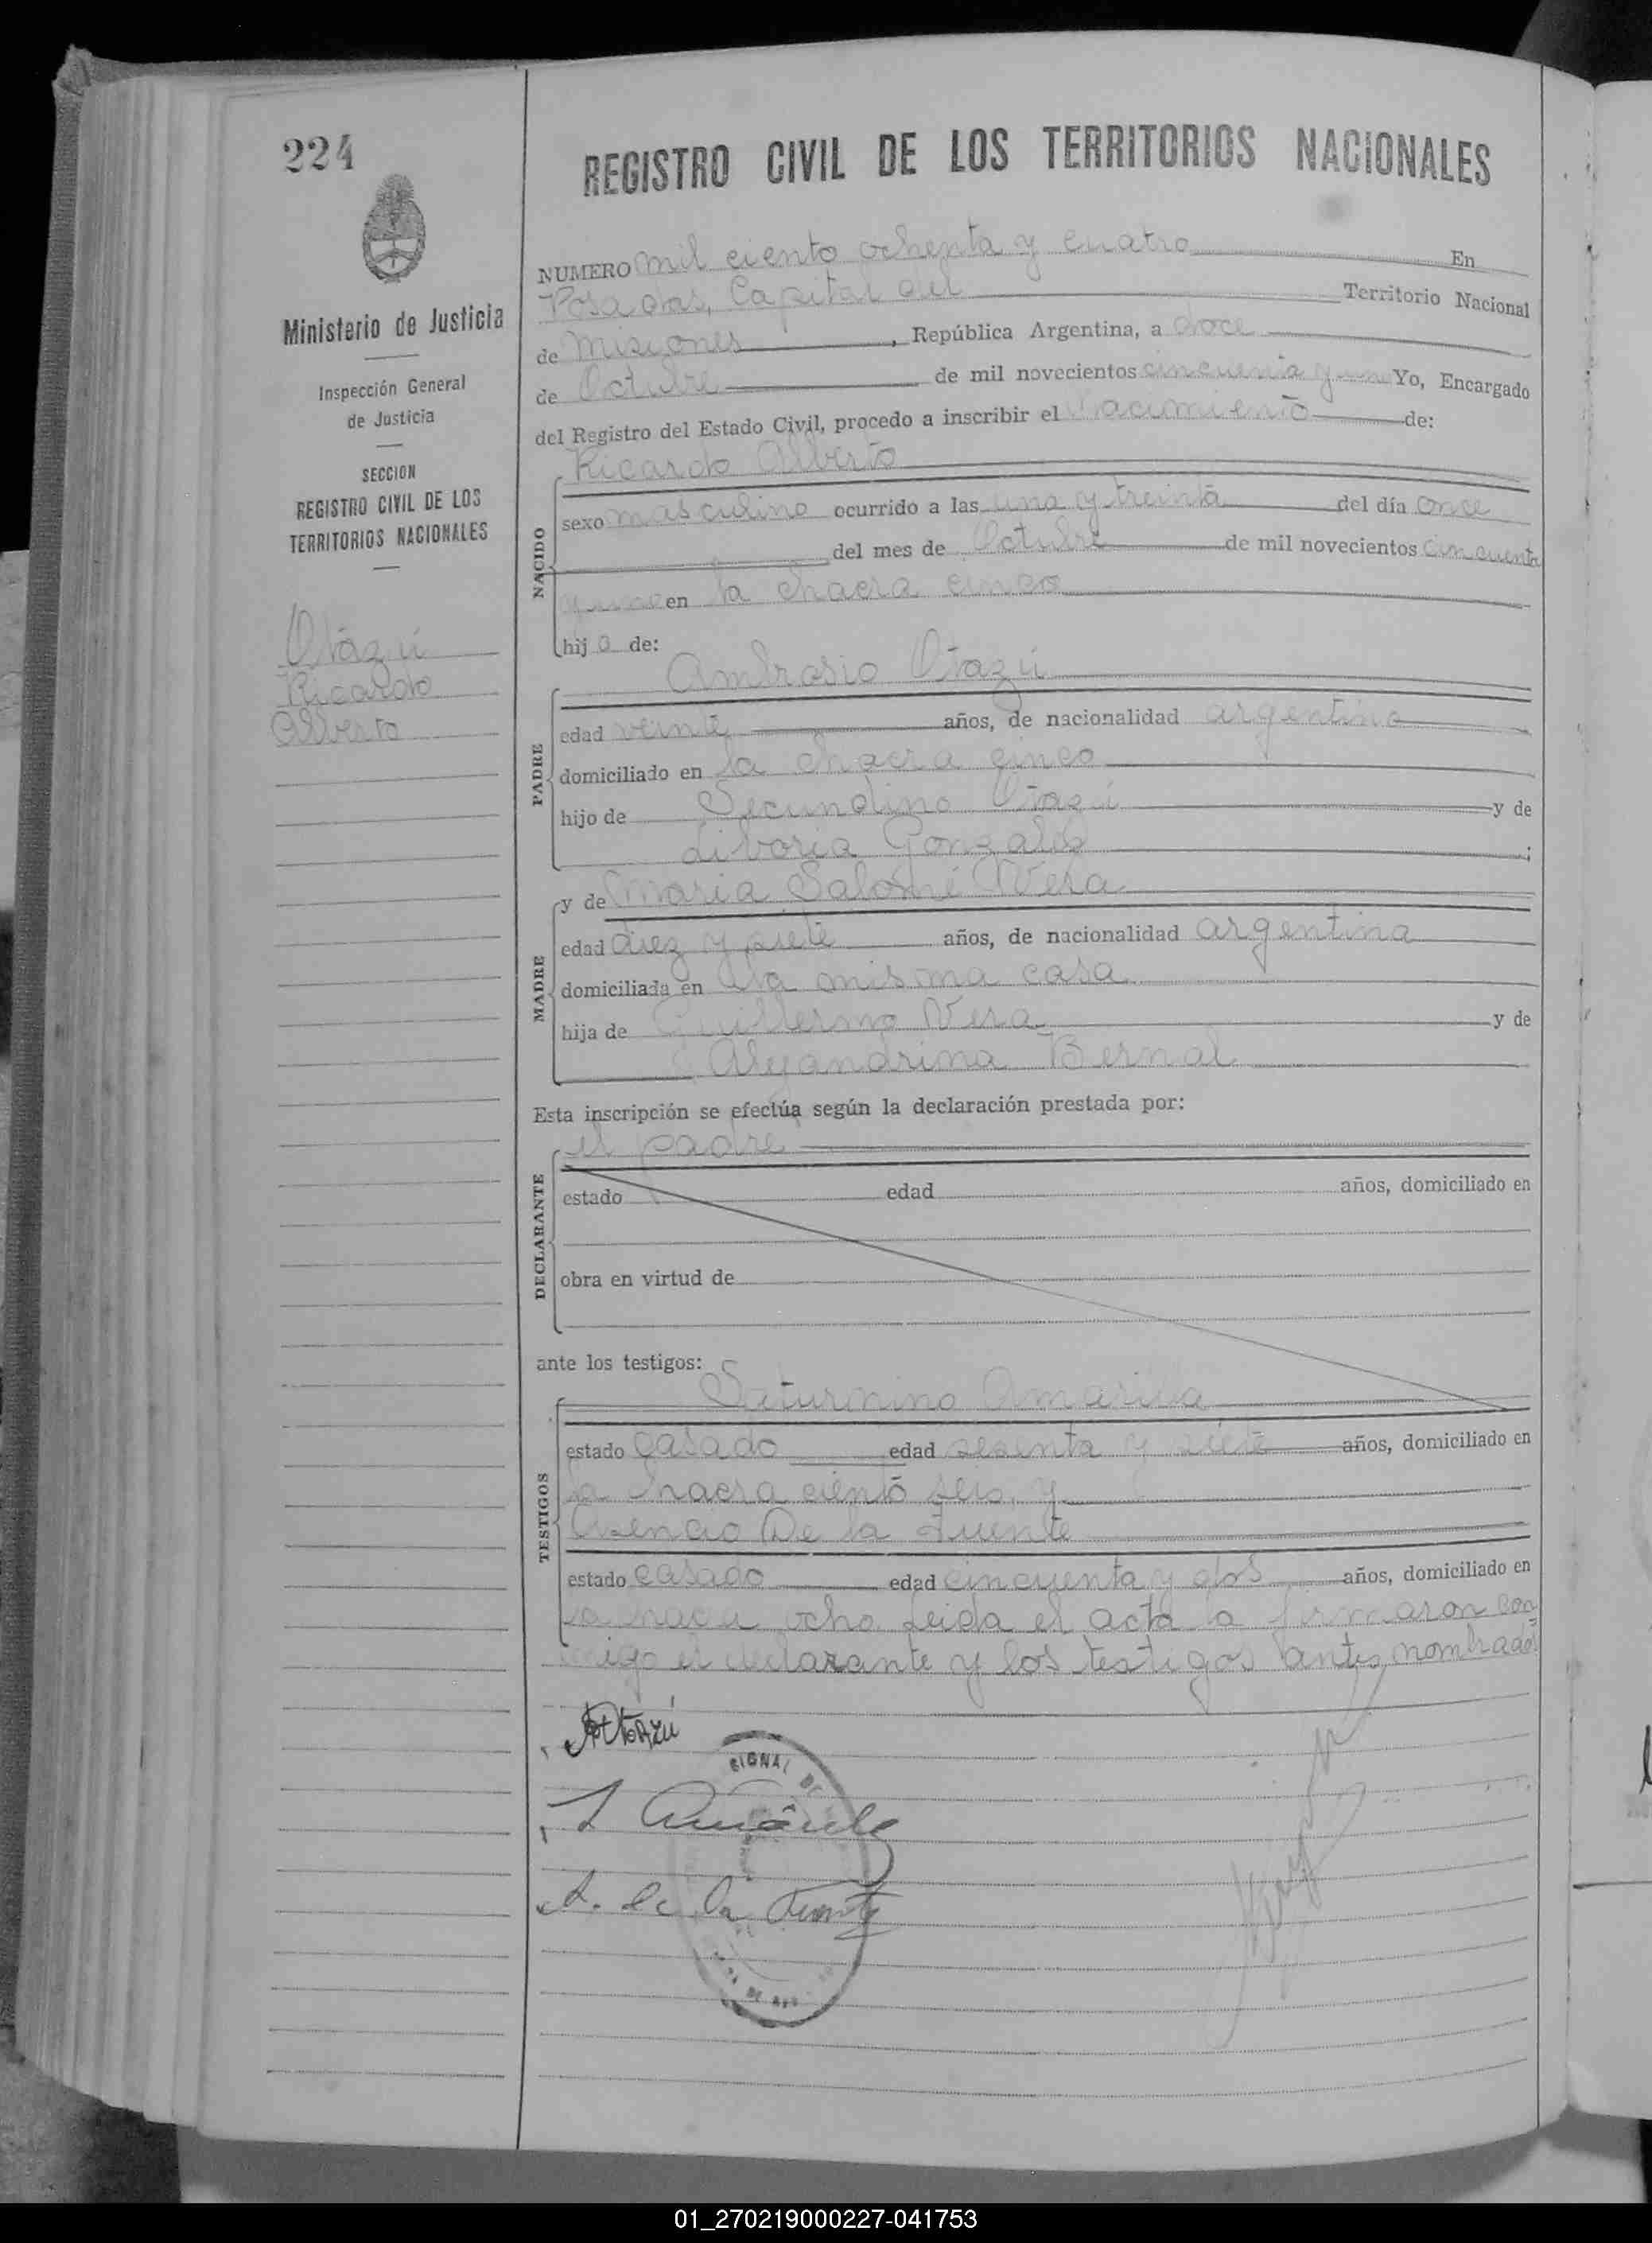 224
REGISTRO CIVIL DE LOS TERRITORIOS NACIONALES
Ministerio de Justicia
Inspección General
de Justicia
SECCION
REGISTRO CIVIL DE LOS
TERRITORIOS NACIONALES
Otazú
Ricardo
Alberto
NUMERO mil ciento ochenta y cuatro En
Posadas, Capital del Territorio Nacional
de Misiones, República Argentina, a doce
de Octubre de mil novecientos cincuenta y uno Yo, Encargado
del Registro del Estado Civil, procedo a inscribir el nacimiento de:
Ricardo Alberto
NACIDO
sexo masculino ocurrido a las una y treinta del día once
del mes de Octubre de mil novecientos cincuenta
y uno en la chacra cinco
hijo de:
Ambrosio Otazú
PADRE
edad veinte años, de nacionalidad argentina
domiciliado en la chacra cinco
hijo de Secundino Otazú y de
Liboria Gonzalez;
MADRE
y de Maria Salomé Vera
edad diez y siete años, de nacionalidad argentina
domiciliada en la misma casa
hija de Guillermo Vera y de
Alejandrina Bernal
Esta inscripción se efectúa según la declaración prestada por:
el padre
DECLARANTE
estado edad años, domiciliado en
obra en virtud de
ante los testigos:
Saturnino Amarilla
TESTIGOS
estado casado edad sesenta y siete años, domiciliado en
la chacra ciento seis y
Asencio De la Fuente
estado casado edad cincuenta y dos años, domiciliado en
la chacra ocho Leida el acta la firmaron con
migo el declarante y los testigos antes nombrados
A Otazú
S Amarilla
A. de la Fuente
01_270219000227-041753